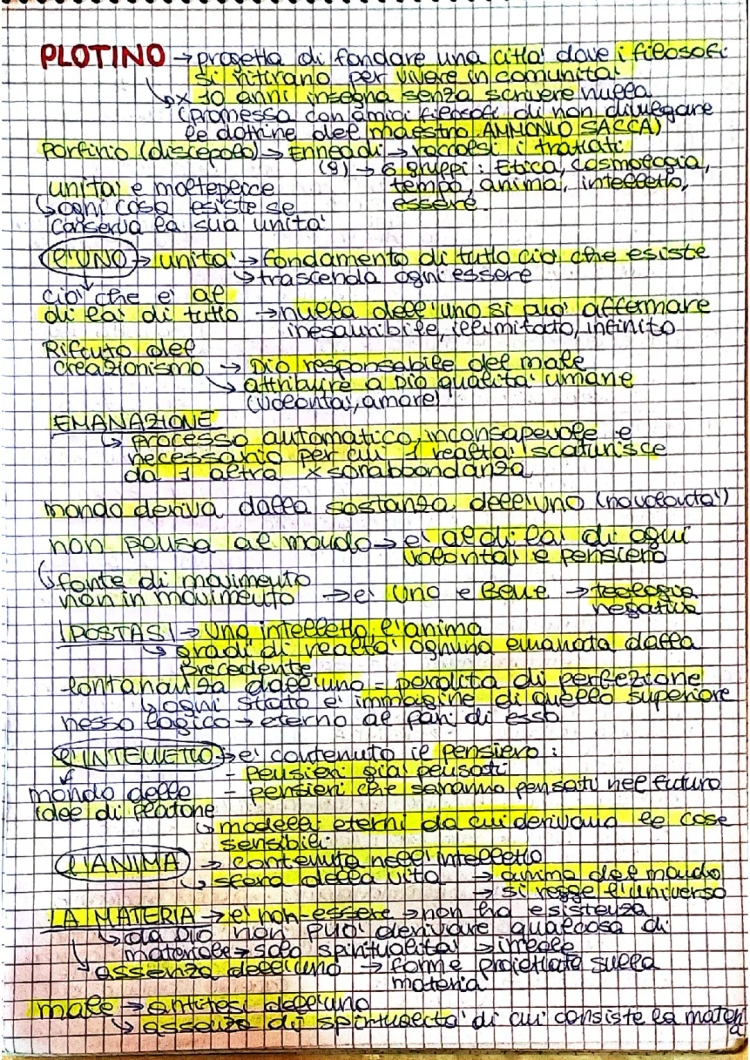 PLOTINO → progetta di fondare una citta' dove i filosofi
si ritirano per vivere in comunita'
↳ x 10 anni insegna senza scrivere nulla
(promessa con amici filosofi di non divulgare
le dottrine del maestro AMMONIO SACCA)
Porfirio (discepolo) → Enneadi → raccolsi i trattati
(9) → 6 gruppi: Etica, cosmologia,
tempo, anima, intelletto,
essere.
unita' e molteplice
↳ ogni cosa esiste se
conserva la sua unita'
l'UNO → unita' → fondamento di tutto cio' che esiste
↳ trascenda ogni essere
cio' che e' al
di la' di tutto → nulla dell'uno si puo' affermare
inesauribile, illimitato, infinito
Rifiuto del
creazionismo → Dio responsabile del male
↳ attribuire a Dio qualita' umane
(volonta', amore)
EMANAZIONE
↳ processo automatico, inconsapevole e
necessario per cui 1 realta' scaturisce
da 1 altra x sovrabbondanza
mondo deriva dalla sostanza dell'uno (no volonta')
non pensa al mondo → e' al di la' di ogni
volonta' e pensiero
↳ fonte di movimento
non in movimento → e' Uno e Bene → teologia
negativa
IPOSTASI → Uno intelletto l'anima
↳ gradi di realta' ognuna emanata dalla
precedente
lontananza dall'uno = perdita di perfezione
↳ ogni stato e' immagine di quello superiore
nesso logico → eterno al pari di esso
L'INTELLETTO → e' contenuto il pensiero:
- pensieri gia' pensati
mondo delle - pensieri che saranno pensati nel futuro
idee di Platone
↳ modelli eterni da cui derivano le cose
sensibili
L'ANIMA → contenuta nell'intelletto
↳ sfera della vita → anima del mondo
→ si regge l'universo
LA MATERIA → e' non-essere → non ha esistenza
↳ da Dio non puo' derivare qualcosa di
materiale → solo spiritualita' → irreale
↳ assenza dell'uno → forme proiettate sulla
materia
male → antitesi dell'uno
↳ assenza di spiritualita' di cui consiste la materia